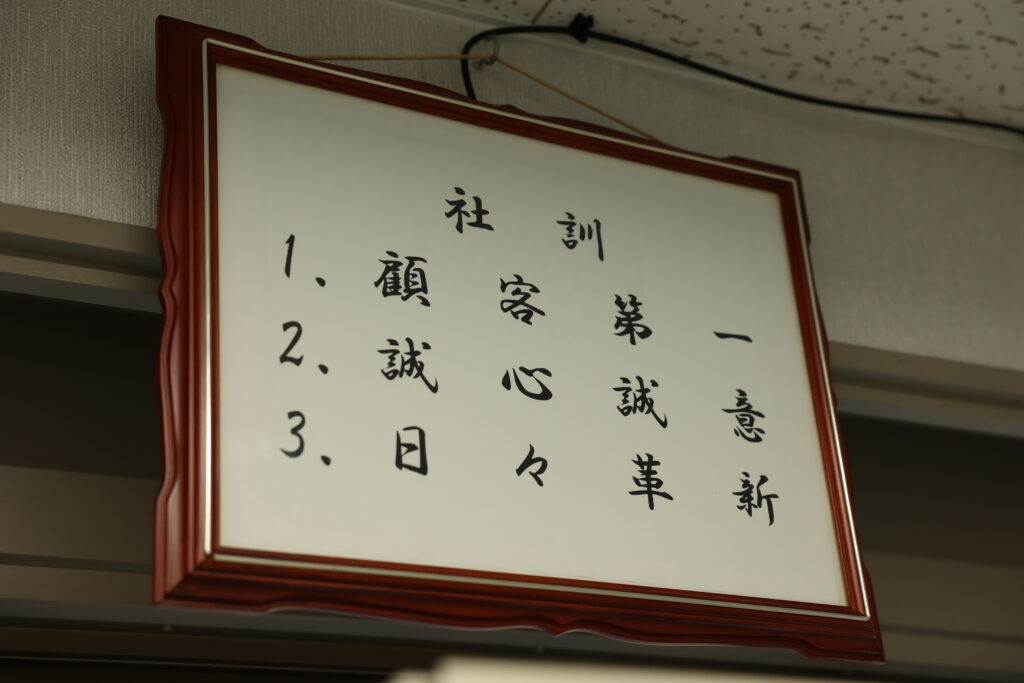 社訓
1、顧客第一
2、誠心誠意
3、日々革新